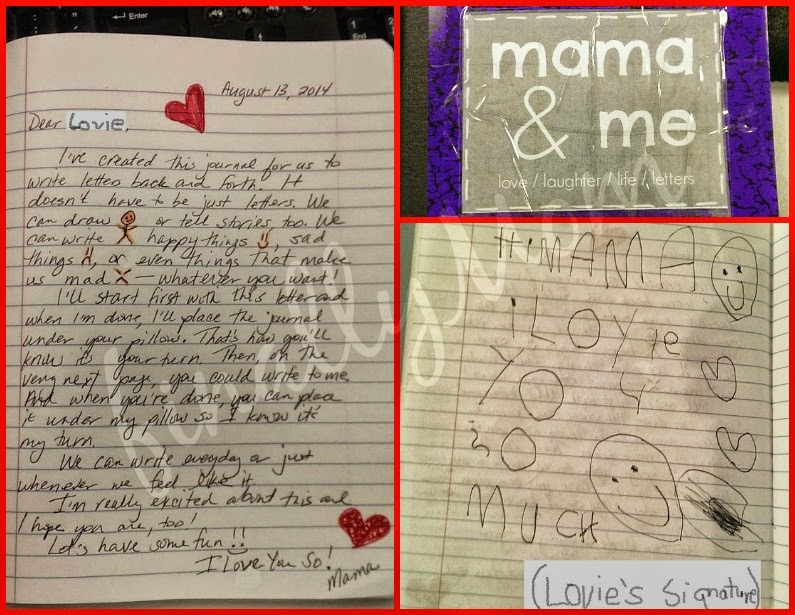 August 13, 2014
Dear Lovie,
I've created this journal for us to
write letters back and forth. It
doesn't have to be just letters. We
can draw or tell stories too. We
can write happy things, sad
things, or even things that make
us mad — whatever you want!
I'll start first with this letter and
when I'm done, I'll place the journal
under your pillow. That's how you'll
know it's your turn. Then, on the
very next page, you could write to me.
And when you're done you can place
it under my pillow so I know it's
my turn.
We can write everyday or just
whenever we feel like it.
I'm really excited about this and
I hope you are, too!
Let's have some fun!!
I Love You So!
Mama
mama
& me
love / laughter / life / letters
Hi MAMA
I LOVE
YOU
SO
MUCH
(Lovie's Signature)
Enter
End